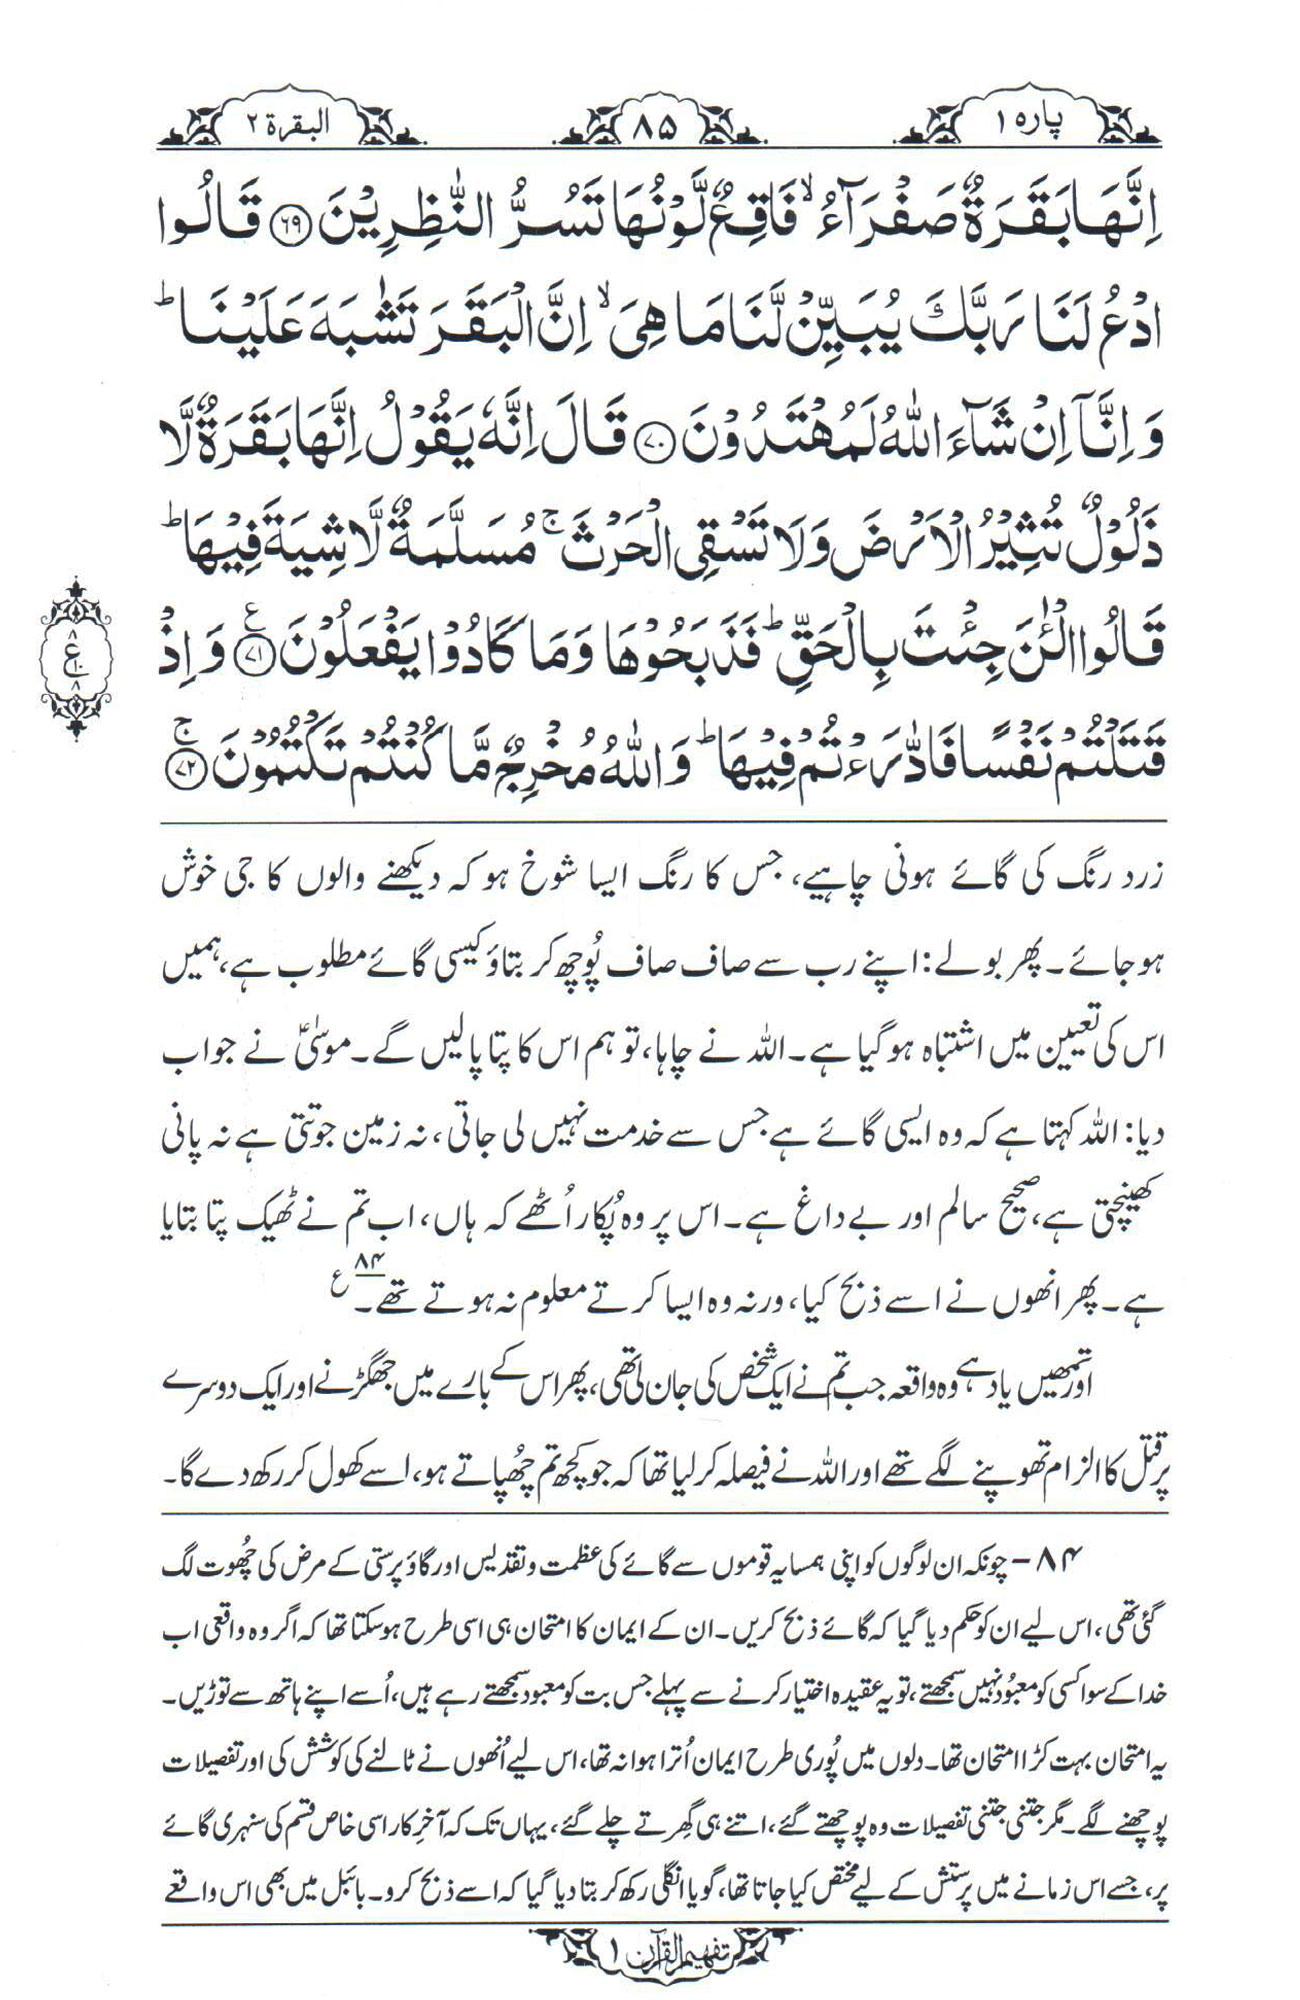 پارہ ۱
۸۵
البقرۃ ۲
اِنَّهَا بَقَرَةٌ صَفْرَآءُ ۙ فَاقِعٌ لَّوْنُهَا تَسُرُّ النّٰظِرِيْنَ ﴿۶۹﴾ قَالُوا
ادْعُ لَنَا رَبَّكَ يُبَيِّنْ لَّنَا مَا هِىَ ۙ اِنَّ الْبَقَرَ تَشٰبَهَ عَلَيْنَا ؕ
وَ اِنَّاۤ اِنْ شَآءَ اللّٰهُ لَمُهْتَدُوْنَ ﴿۷۰﴾ قَالَ اِنَّهٗ يَقُوْلُ اِنَّهَا بَقَرَةٌ لَّا
ذَلُوْلٌ تُثِيْرُ الْاَرْضَ وَلَا تَسْقِى الْحَرْثَ ۚ مُسَلَّمَةٌ لَّا شِيَةَ فِيْهَا ؕ
قَالُوا الْـٰٔنَ جِئْتَ بِالْحَقِّ ؕ فَذَبَحُوْهَا وَمَا كَادُوْا يَفْعَلُوْنَ ﴿۷۱﴾ ع وَ اِذْ
۸ ع ۱۰ ۸
قَتَلْتُمْ نَفْسًا فَادّٰرَءْتُمْ فِيْهَا ؕ وَ اللّٰهُ مُخْرِجٌ مَّا كُنْتُمْ تَكْتُمُوْنَ ﴿۷۲﴾ ۚ
زرد رنگ کی گائے ہونی چاہیے، جس کا رنگ ایسا شوخ ہو کہ دیکھنے والوں کا جی خوش
ہو جائے۔ پھر بولے: اپنے رب سے صاف صاف پُوچھ کر بتاؤ کیسی گائے مطلوب ہے، ہمیں
اس کی تعیین میں اشتباہ ہو گیا ہے۔ اللہ نے چاہا، تو ہم اس کا پتا پا لیں گے۔ موسٰیؑ نے جواب
دیا: اللہ کہتا ہے کہ وہ ایسی گائے ہے جس سے خدمت نہیں لی جاتی، نہ زمین جوتتی ہے نہ پانی
کھینچتی ہے، صحیح سالم اور بے داغ ہے۔ اس پر وہ پُکار اُٹھے کہ ہاں، اب تم نے ٹھیک پتا بتایا
ہے۔ پھر انھوں نے اسے ذبح کیا، ورنہ وہ ایسا کرتے معلوم نہ ہوتے تھے۔ ۸۴ ع
اور تمھیں یاد ہے وہ واقعہ جب تم نے ایک شخص کی جان لی تھی، پھر اس کے بارے میں جھگڑنے اور ایک دوسرے
پر قتل کا الزام تھوپنے لگے تھے اور اللہ نے فیصلہ کر لیا تھا کہ جو کچھ تم چُھپاتے ہو، اسے کھول کر رکھ دے گا۔
۸۴ – چونکہ ان لوگوں کو اپنی ہمسایہ قوموں سے گائے کی عظمت و تقدیس اور گاؤ پرستی کے مرض کی چُھوت لگ
گئی تھی، اس لیے ان کو حکم دیا گیا کہ گائے ذبح کریں۔ ان کے ایمان کا امتحان ہی اسی طرح ہو سکتا تھا کہ اگر وہ واقعی اب
خدا کے سوا کسی کو معبُود نہیں سمجھتے، تو یہ عقیدہ اختیار کرنے سے پہلے جس بت کو معبود سمجھتے رہے ہیں، اُسے اپنے ہاتھ سے توڑیں۔
یہ امتحان بہت کڑا امتحان تھا۔ دلوں میں پُوری طرح ایمان اُترا ہوا نہ تھا، اس لیے اُنھوں نے ٹالنے کی کوشش کی اور تفصیلات
پوچھنے لگے۔ مگر جتنی جتنی تفصیلات وہ پوچھتے گئے، اتنے ہی گِھرتے چلے گئے، یہاں تک کہ آخرِ کار اسی خاص قسم کی سنہری گائے
پر، جسے اس زمانے میں پرستش کے لیے مختص کیا جاتا تھا، گویا انگلی رکھ کر بتا دیا گیا کہ اسے ذبح کرو۔ بائبل میں بھی اس واقعے
تفہیم القرآن ۱